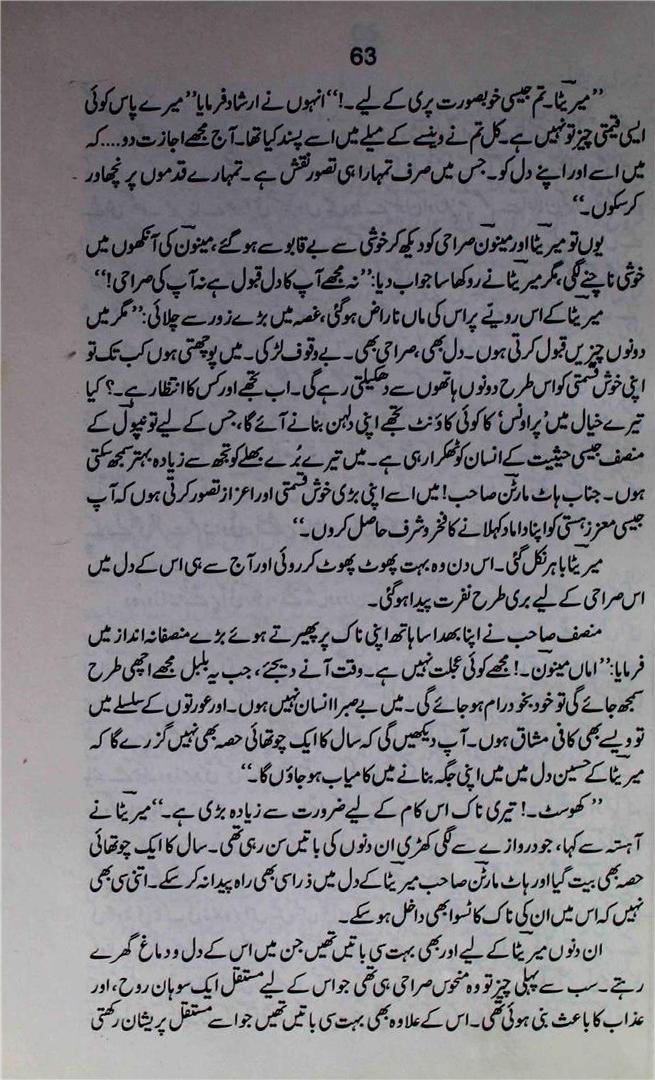 63
”میریٹا۔ تم جیسی خوبصورت پری کے لیے۔!“ انہوں نے ارشاد فرمایا ”میرے پاس کوئی
ایسی قیمتی چیز تو نہیں ہے۔ کل تم نے وینسے کے میلے میں اسے پسند کیا تھا۔ آج مجھے اجازت دو.... کہ
میں اسے اور اپنے دل کو۔ جس میں صرف تمہارا ہی تصور نقش ہے۔ تمہارے قدموں پر نچھاور
کر سکوں۔“
یوں تو میریٹا اور مینون صراحی کو دیکھ کر خوشی سے بے قابو سے ہو گئے، مینون کی آنکھوں میں
خوشی ناچنے لگی، مگر میریٹا نے روکھا سا جواب دیا: ”نہ مجھے آپ کا دل قبول ہے نہ آپ کی صراحی!“
میریٹا کے اس رویّے پر اس کی ماں ناراض ہو گئی، غصہ میں بڑے زور سے چلائی: ”مگر میں
دونوں چیزیں قبول کرتی ہوں۔ دل بھی، صراحی بھی۔ بے وقوف لڑکی۔ میں پوچھتی ہوں کب تک تو
اپنی خوش قسمتی کو اس طرح دونوں ہاتھوں سے دھکیلتی رہے گی۔ اب تجھے اور کس کا انتظار ہے۔؟ کیا
تیرے خیال میں ’پراونس‘ کا کوئی کاؤنٹ تجھے اپنی دلہن بنانے آئے گا، جس کے لیے تو نیپول کے
منصف جیسی حیثیت کے انسان کو ٹھکرا رہی ہے۔ میں تیرے بُرے بھلے کو تجھ سے زیادہ بہتر سمجھ سکتی
ہوں۔ جناب ہاٹ مارٹن صاحب! میں اسے اپنی بڑی خوش قسمتی اور اعزاز تصور کرتی ہوں کہ آپ
جیسی معزز ہستی کو اپنا داماد کہلانے کا فخر و شرف حاصل کروں۔“
میریٹا باہر نکل گئی۔ اس دن وہ بہت پھوٹ پھوٹ کر روئی اور آج سے ہی اس کے دل میں
اس صراحی کے لیے بری طرح نفرت پیدا ہو گئی۔
منصف صاحب نے اپنا بھدا سا ہاتھ اپنی ناک پر پھیرتے ہوئے بڑے منصفانہ انداز میں
فرمایا: ”اماں مینون۔! مجھے کوئی عجلت نہیں ہے۔ وقت آنے دیجئے، جب یہ بلبل مجھے اچھی طرح
سمجھ جائے گی تو خود بخود رام ہو جائے گی۔ میں بے صبرا انسان نہیں ہوں۔ اور عورتوں کے سلسلے میں
تو ویسے بھی کافی مشاق ہوں۔ آپ دیکھیں گی کہ سال کا ایک چوتھائی حصہ بھی نہیں گزرے گا کہ
میریٹا کے حسین دل میں میں اپنی جگہ بنانے میں کامیاب ہو جاؤں گا۔“
”کھوسٹ۔! تیری ناک اس کام کے لیے ضرورت سے زیادہ بڑی ہے۔“ میریٹا نے
آہستہ سے کہا، جو دروازے سے لگی کھڑی ان دنوں کی باتیں سن رہی تھی۔ سال کا ایک چوتھائی
حصہ بھی بیت گیا اور ہاٹ مارٹن صاحب میریٹا کے دل میں ذرا سی بھی راہ پیدا نہ کر سکے۔ اتنی سی بھی
نہیں کہ اس میں ان کی ناک کا ٹسوا بھی داخل ہو سکے۔
ان دنوں میریٹا کے لیے اور بھی بہت سی باتیں تھیں جن میں اس کے دل و دماغ گھرے
رہتے۔ سب سے پہلی چیز تو وہ منحوس صراحی ہی تھی جو اس کے لیے مستقل ایک سوہان روح، اور
عذاب کا باعث بنی ہوئی تھی۔ اس کے علاوہ بھی بہت سی باتیں تھیں جو اسے مستقل پریشان رکھتی